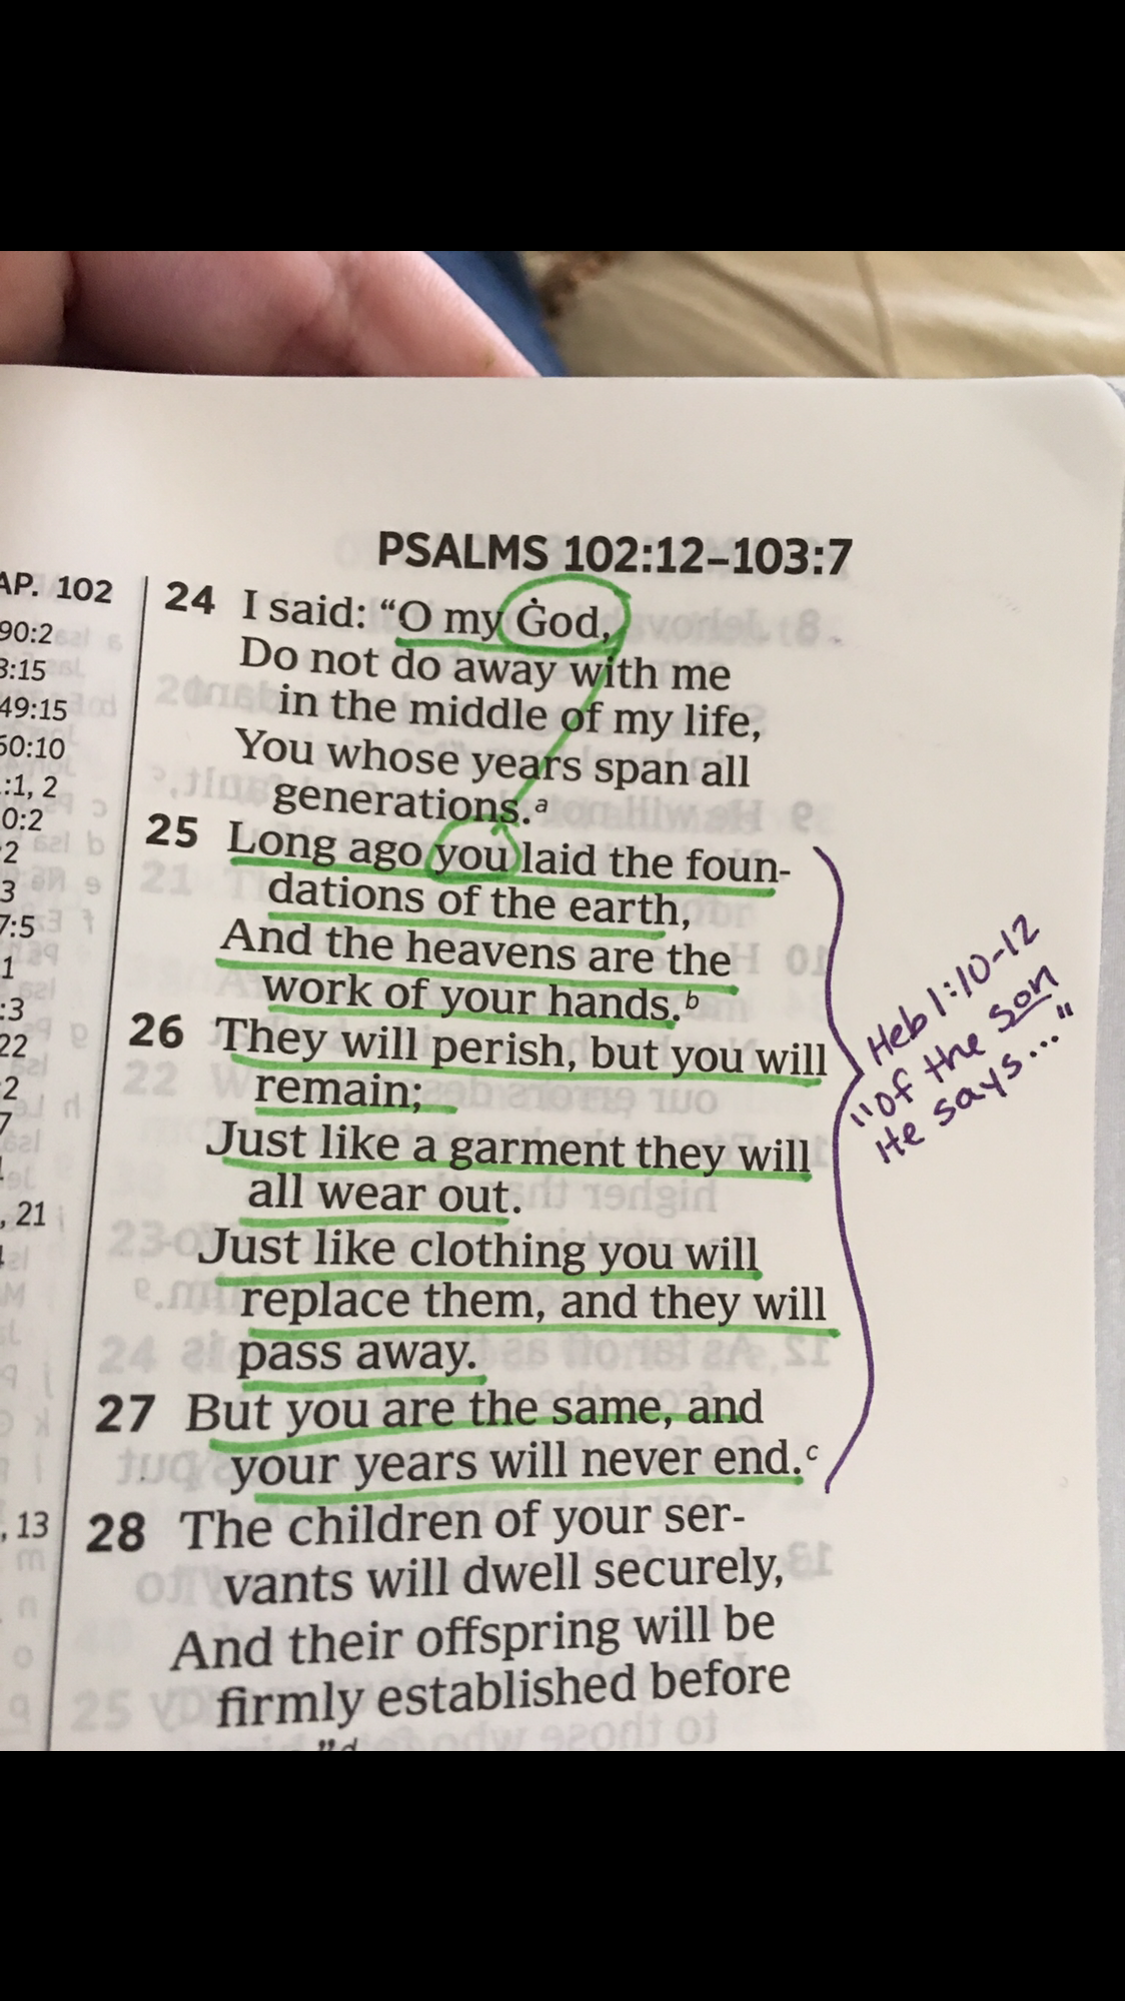 PSALMS 102:12–103:7
AP. 102
90:2
3:15
49:15
50:10
:1, 2
0:2
:2
3
7:5
1
:3
22
:2
7
, 21
, 13
24 I said: “O my God,
Do not do away with me
in the middle of my life,
You whose years span all
generations.a
25 Long ago you laid the foun-
dations of the earth,
And the heavens are the
work of your hands.b
26 They will perish, but you will
remain;
Just like a garment they will
all wear out.
Just like clothing you will
replace them, and they will
pass away.
27 But you are the same, and
your years will never end.c
28 The children of your ser-
vants will dwell securely,
And their offspring will be
firmly established before
”d
Heb 1:10-12
"of the son
He says..."